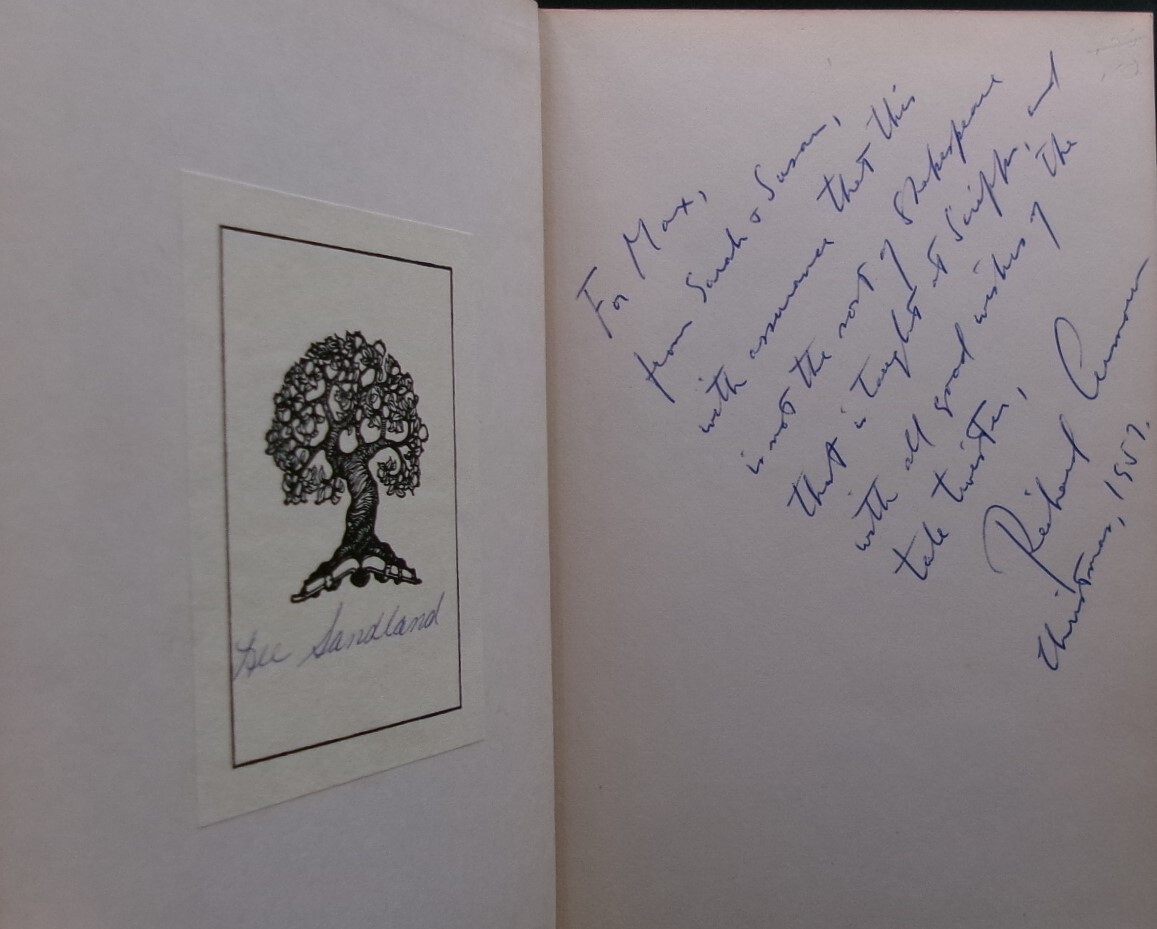 Lee Sandland
For Max,
from Sarah & Susan,
with assurance that this
is not the sort of Shakespeare
that is taught at Scripps, and
with all good wishes of the
tale twister,
Richard Armour
Christmas, 1957.